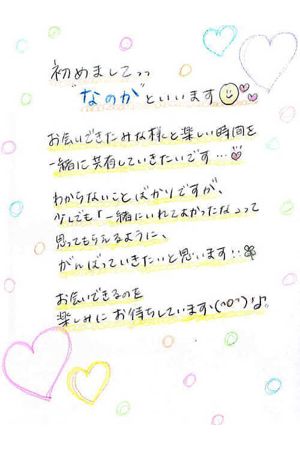 初めましてっっ
"なのか"といいます
お会いできたみな様と楽しい時間を
一緒に共有していきたいです…
わからないことばかりですが、
少しでも「一緒にいれてよかったな」って
思ってもらえるように、
がんばっていきたいと思います!!
お会いできるのを
楽しみにお待ちしています(^o^)♪